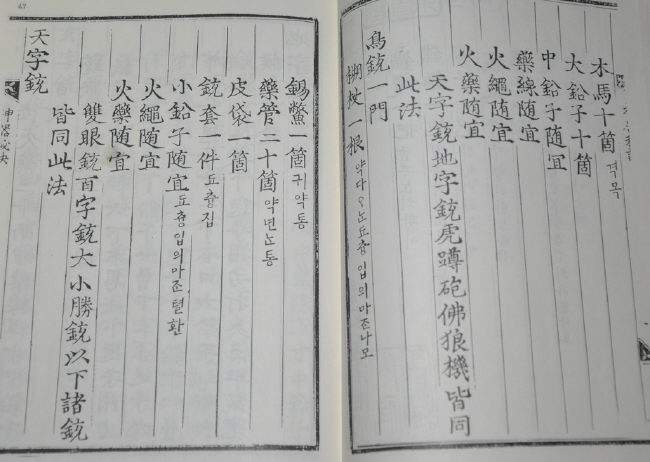 木馬十箇 격목
大鉛子十箇
中鉛子隨宜
藥線隨宜
火繩隨宜
火藥隨宜
天字銃地字銃虎蹲砲佛狼機皆同
此法
鳥銃一門
搠杖一根 약다 노 됴츙 입의 마즌 나모
錫鱉一箇 귀약통
藥管三十箇 약 년 통
皮袋一箇
銃套一件 됴츙집
小鉛子隨宜 됴츙 입의 마즌 텰환
火繩隨宜
火藥隨宜
雙眼銃百字銃大小勝銃以下諸銃
皆同此法
天字銃
神器秘訣